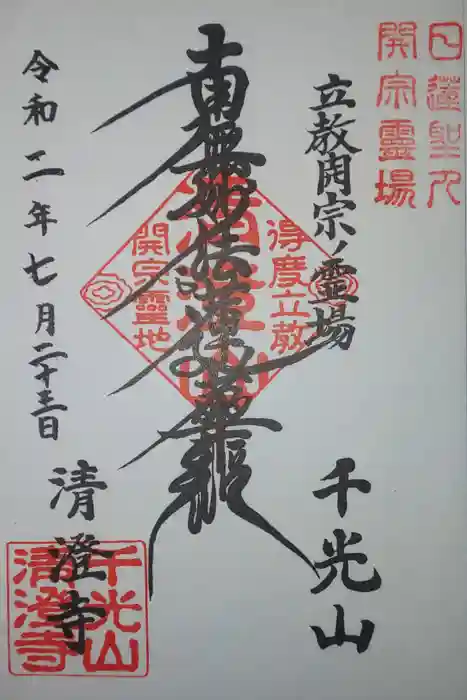 日蓮聖人
開宗霊場
立教開宗ノ霊場
千光山
南無妙法蓮華経
得度立教
清澄山
開宗霊地
令和二年七月二十三日
清澄寺
千光山
清澄寺